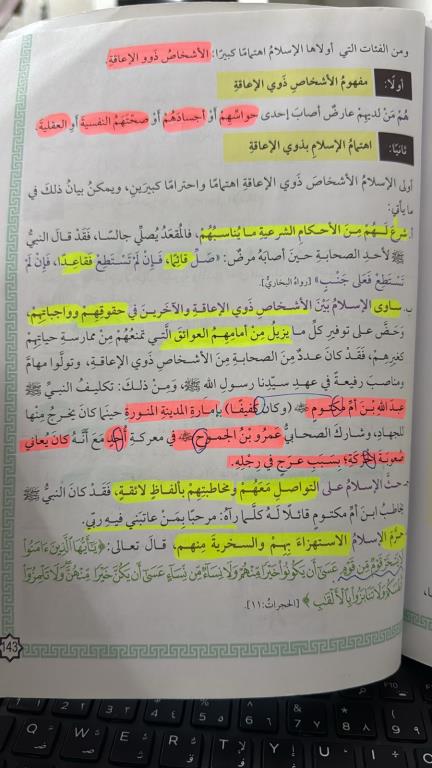 ومن الفئات التي أولاها الإسلامُ اهتمامًا كبيرًا: الأشخاصُ ذوو الإعاقةِ.
أولًا: مفهومُ الأشخاصِ ذَوي الإعاقةِ
هُمْ مَنْ لديهِمْ عارضٌ أصابَ إحدى حواسِّهِمْ أَوْ أجسادَهُمْ أَوْ صحّتَهُمُ النفسيةَ أو العقليةَ.
ثانيًا: اهتمامُ الإسلامِ بذوي الإعاقةِ
أولى الإسلامُ الأشخاصَ ذَوي الإعاقةِ اهتمامًا واحترامًا كبيرَينِ، ويمكنُ بيانُ ذلكَ في
ما يأتي:
شرعَ لَـهُـمْ مِنَ الأحكامِ الشرعيةِ ما يُناسبُهُمْ، فالمُقعَدُ يُصلّي جالسًا، فَقَدْ قالَ النبيُّ
ﷺ لأحدِ الصحابةِ حينَ أصابَهُ مرضٌ: «صَلِّ قائِمًا، فَـإِنْ لَمْ تَسْتَطِعْ فَقاعِدًا، فَإِنْ لَمْ
تَسْتَطِعْ فَعَلى جَنْبٍ» [رواهُ البخاريُّ].
ب. ساوى الإسلامُ بَيْنَ الأشخاصِ ذَوي الإعاقةِ والآخَرينَ في حقوقِهِمْ وواجباتِهِمْ،
وَحَضَّ على توفيرِ كلِّ ما يزيلُ مِنْ أمامِهِمُ العوائقَ الَّتي تمنعُهُمْ مِنْ ممارسةِ حياتِهِمْ
كغيرِهِمْ، فَقَدْ كانَ عددٌ مِنَ الصحابةِ مِنَ الأشخاصِ ذَوي الإعاقةِ، وتولَّوا مهامَّ
ومناصبَ رفيعةً في عهدِ سيّدِنا رسولِ اللهِ ﷺ، وَمِنْ ذلكَ: تكليفُ النبيِّ ﷺ
عبدَ اللهِ بْنَ أُمِّ مكتومٍ (وكانَ كفيفًا) بإمارةِ المدينةِ المنورةِ حينَما كانَ يخرجُ مِنْها
للجهادِ، وشاركَ الصحابيُّ عَمْرُو بْنُ الجموحِ في معركةِ أُحُدٍ مَعَ أَنَّهُ كانَ يُعاني
صعوبةَ الحَرَكَةِ؛ بِسَبَبِ عرجٍ في رِجْلِهِ.
حثَّ الإسلامُ على التواصلِ مَعَهُمْ ومخاطبتِهِمْ بألفاظٍ لائقةٍ، فَقَدْ كانَ النبيُّ ﷺ
يخاطبُ ابنَ أُمِّ مكتومٍ قائلًا لَـهُ كلَّـما رآهُ: مرحبًا بِمَنْ عاتبَني فيهِ ربّي.
حرَّمَ الإسلامُ الاستهزاءَ بِهِمْ والسخريةَ مِنهم، قالَ تعالى: ﴿يَـٰٓأَيُّهَا ٱلَّذِينَ ءَامَنُوا۟
لَا يَسْخَرْ قَوْمٌ مِّن قَوْمٍ عَسَىٰٓ أَن يَكُونُوا۟ خَيْرًا مِّنْهُمْ وَلَا نِسَآءٌ مِّن نِّسَآءٍ عَسَىٰٓ أَن يَكُنَّ خَيْرًا مِّنْهُنَّ وَلَا تَلْمِزُوٓا۟
أَنفُسَكُمْ وَلَا تَنَابَزُوا۟ بِٱلْأَلْقَـٰبِ﴾ [الحجرات: ١١].
143